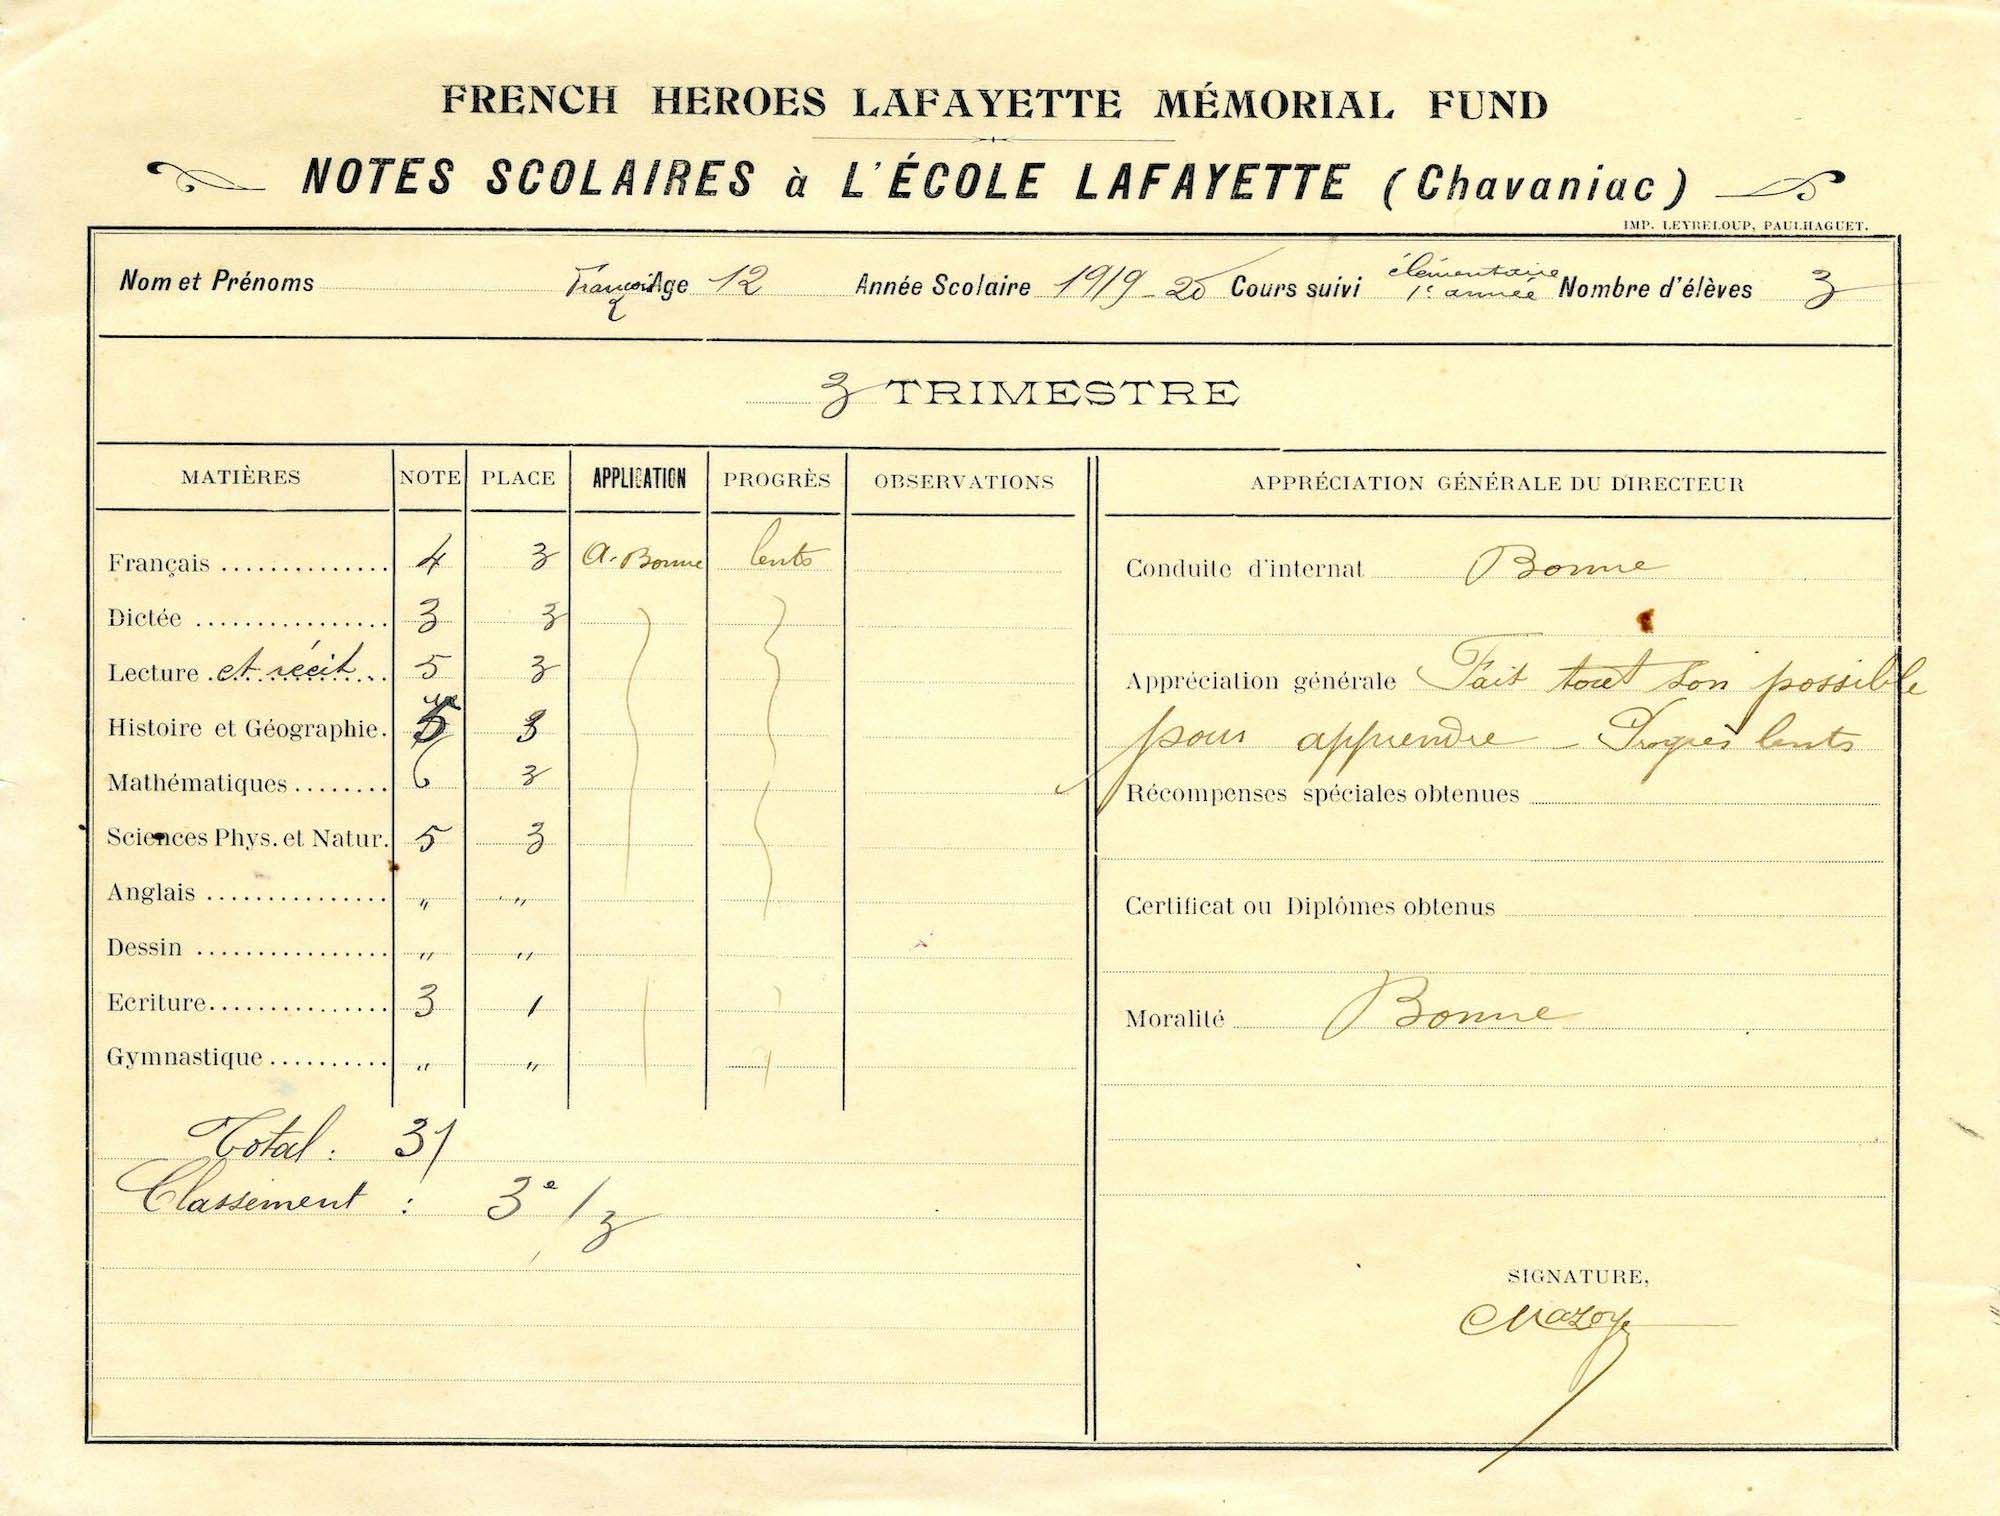 FRENCH HEROES LAFAYETTE MÉMORIAL FUND
NOTES SCOLAIRES à L'ÉCOLE LAFAYETTE (Chavaniac)
IMP. LEYRELOUP, PAULHAGUET.
Nom et Prénoms Age 12 Année Scolaire 1919-20 Cours suivi élémentaire 1e année Nombre d'élèves 3
3 TRIMESTRE
MATIÈRES NOTE PLACE APPLICATION PROGRÈS OBSERVATIONS
Français 4 3 A. Bonne lents
Dictée 3 3
Lecture et récit 5 3
Histoire et Géographie. 5 3
Mathématiques 6 3
Sciences Phys. et Natur. 5 3
Anglais " "
Dessin " "
Ecriture 3 1
Gymnastique " "
Total : 31
Classement : 3e/3
APPRÉCIATION GÉNÉRALE DU DIRECTEUR
Conduite d'internat Bonne
Appréciation générale Fait tout son possible
pour apprendre - Progrès lents
Récompenses spéciales obtenues
Certificat ou Diplômes obtenus
Moralité Bonne
SIGNATURE,
Mazoye